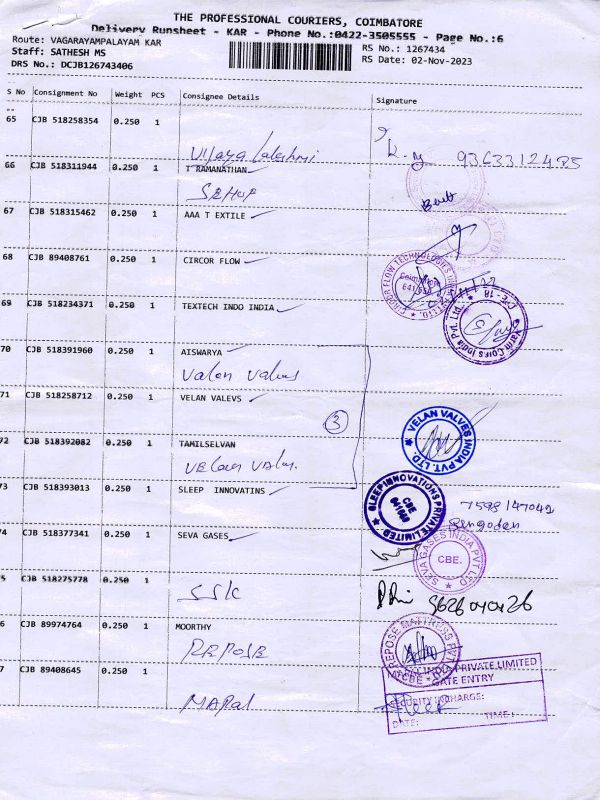 THE PROFESSIONAL COURIERS, COIMBATORE
Delivery Runsheet - KAR - Phone No.:0422-3505555 - Page No.:6
Route: VAGARAYAMPALAYAM KAR RS No.: 1267434
Staff: SATHESH MS RS Date: 02-Nov-2023
DRS No.: DCJB126743406
S No Consignment No Weight PCS Consignee Details Signature
65 CJB 518258354 0.250 1
Vijaya Lakshmi 9363312485
66 CJB 518311944 0.250 1 T RAMANATHAN
67 CJB 518315462 0.250 1 AAA T EXTILE
68 CJB 89408761 0.250 1 CIRCOR FLOW
69 CJB 518234371 0.250 1 TEXTECH INDO INDIA
70 CJB 518391960 0.250 1 AISWARYA
Valon Valves
71 CJB 518258712 0.250 1 VELAN VALEVS
3
VELAN VALVES INDIA PVT. LTD.
72 CJB 518392082 0.250 1 TAMILSELVAN
Velan Valve.
73 CJB 518393013 0.250 1 SLEEP INNOVATINS
SLEEP INNOVATIONS PRIVATE LIMITED
CBE
74 CJB 518377341 0.250 1 SEVA GASES
SEVA GASES INDIA PVT LTD
CBE.
5 CJB 518275778 0.250 1
SSK 9626040426
6 CJB 89974764 0.250 1 MOORTHY
REPOSE
REPOSE MATTRESS PVT
7 CJB 89408645 0.250 1
MAPal
INDIA PRIVATE LIMITED
GATE ENTRY
SECURITY INCHARGE:
DATE: TIME: